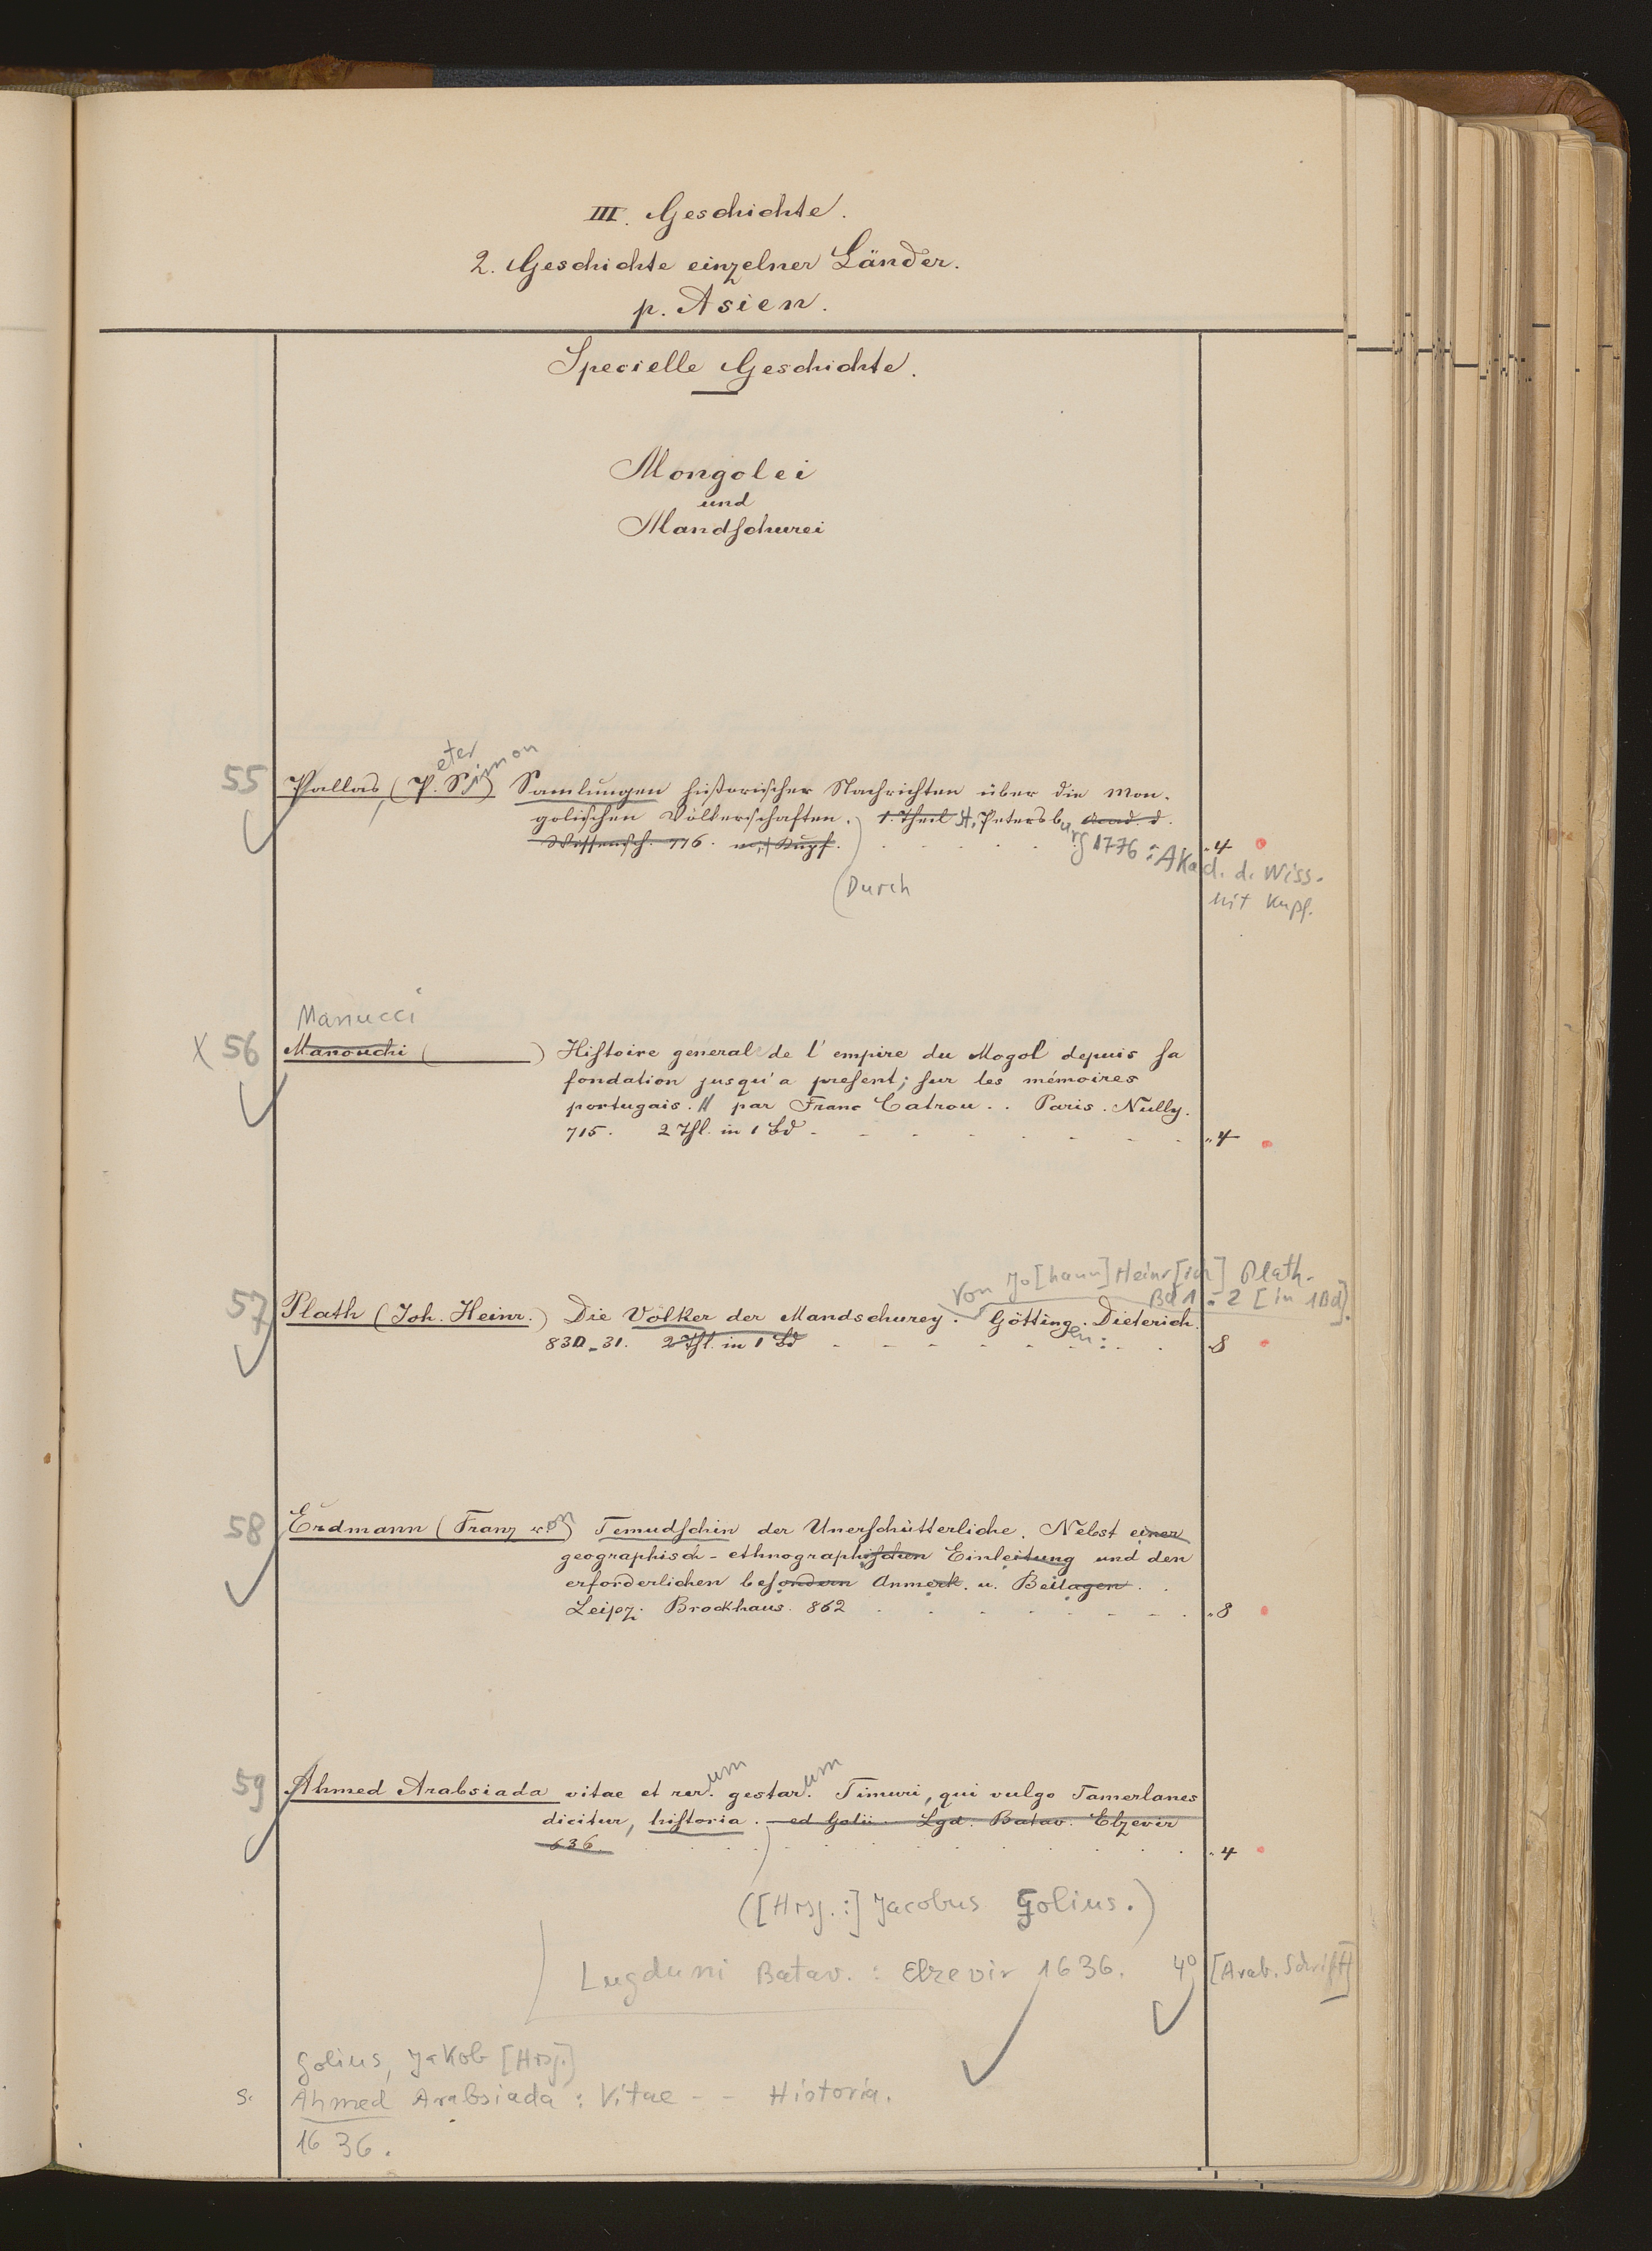 III. Geschichte.
2. Geschichte einzelner Länder.
p. Asien.
Specielle Geschichte.
Mongolei
und
Mandschurei
eter imon
55 Pallas, (P. S.) Samlungen historischer Nachrichten über die Mon-
golischen Völkerschaften. 1. Theil St. Petersburg Acad. d.
Wissensch. 776. mit Kupf. 1776 : Akad. d. Wiss. 4
(Durch mit Kupf.
Manucci
x 56 Manouchi ( ) Histoire général de l'empire du Mogol depuis sa
fondation jusqu'a present; sur les mémoires
portugais. // par Franc Catrou. Paris. Nully.
715. 2 Thl. in 1 Bd 4
von Jo[hann] Heinr[ich] Plath.
Bd 1 - 2 [in 1 Bd].
57 Plath (Joh. Heinr.) Die Völker der Mandschurey. Göttingen : Dieterich.
830-31. 2 Thl. in 1 Bd 8
58 Erdmann (Franz von) Temudschin der Unerschütterliche. Nebst einer
geographisch-ethnographischen Einleitung und den
erforderlichen besondern Anmerk. u. Beilagen.
Leipz. Brockhaus. 862 8
um um
59 Ahmed Arabsiada vitae et rer. gestar. Timuri, qui vulgo Tamerlanes
dicitur, historia. ed Golii. Lgd. Batav. Elzevir
636. 4
([Hrsg.:] Jacobus Golius.)
Lugduni Batav. : Elzevir 1636. 4° [Arab. Schrift]
Golius, Jakob [Hrsg.]
s. Ahmed Arabsiada : Vitae - - Historia.
1636.